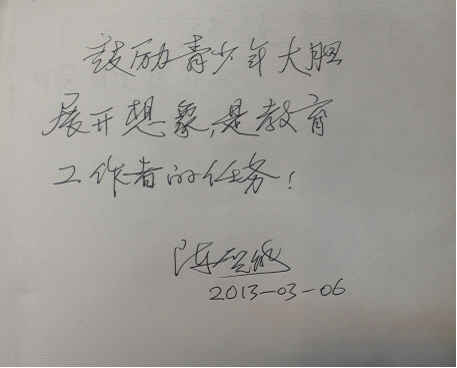 鼓励青少年大胆
展开想象,是教育
工作者的任务!
陈
2013-03-06